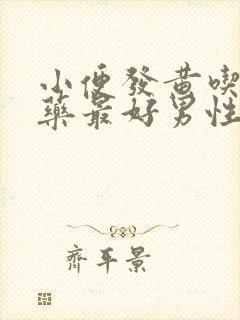 小便發黃喫
藥最好男性
齊平景